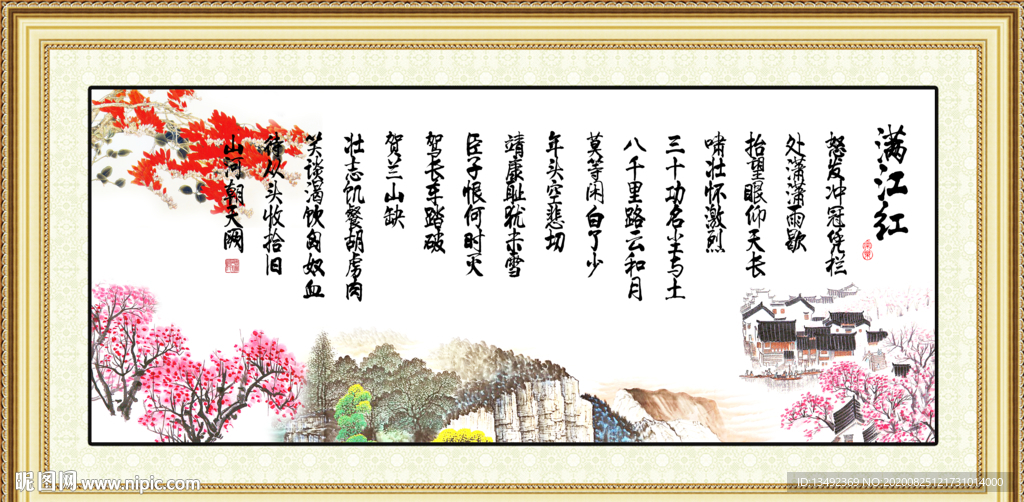 满江红
怒发冲冠凭栏
处潇潇雨歇
抬望眼仰天长
啸壮怀激烈
三十功名尘与土
八千里路云和月
莫等闲白了少
年头空悲切
靖康耻犹未雪
臣子恨何时灭
驾长车踏破
贺兰山缺
壮志饥餐胡虏肉
笑谈渴饮匈奴血
待从头收拾旧
山河朝天阙
昵图网 www.nipic.com
ID:13492369 NO:20200825121731014000